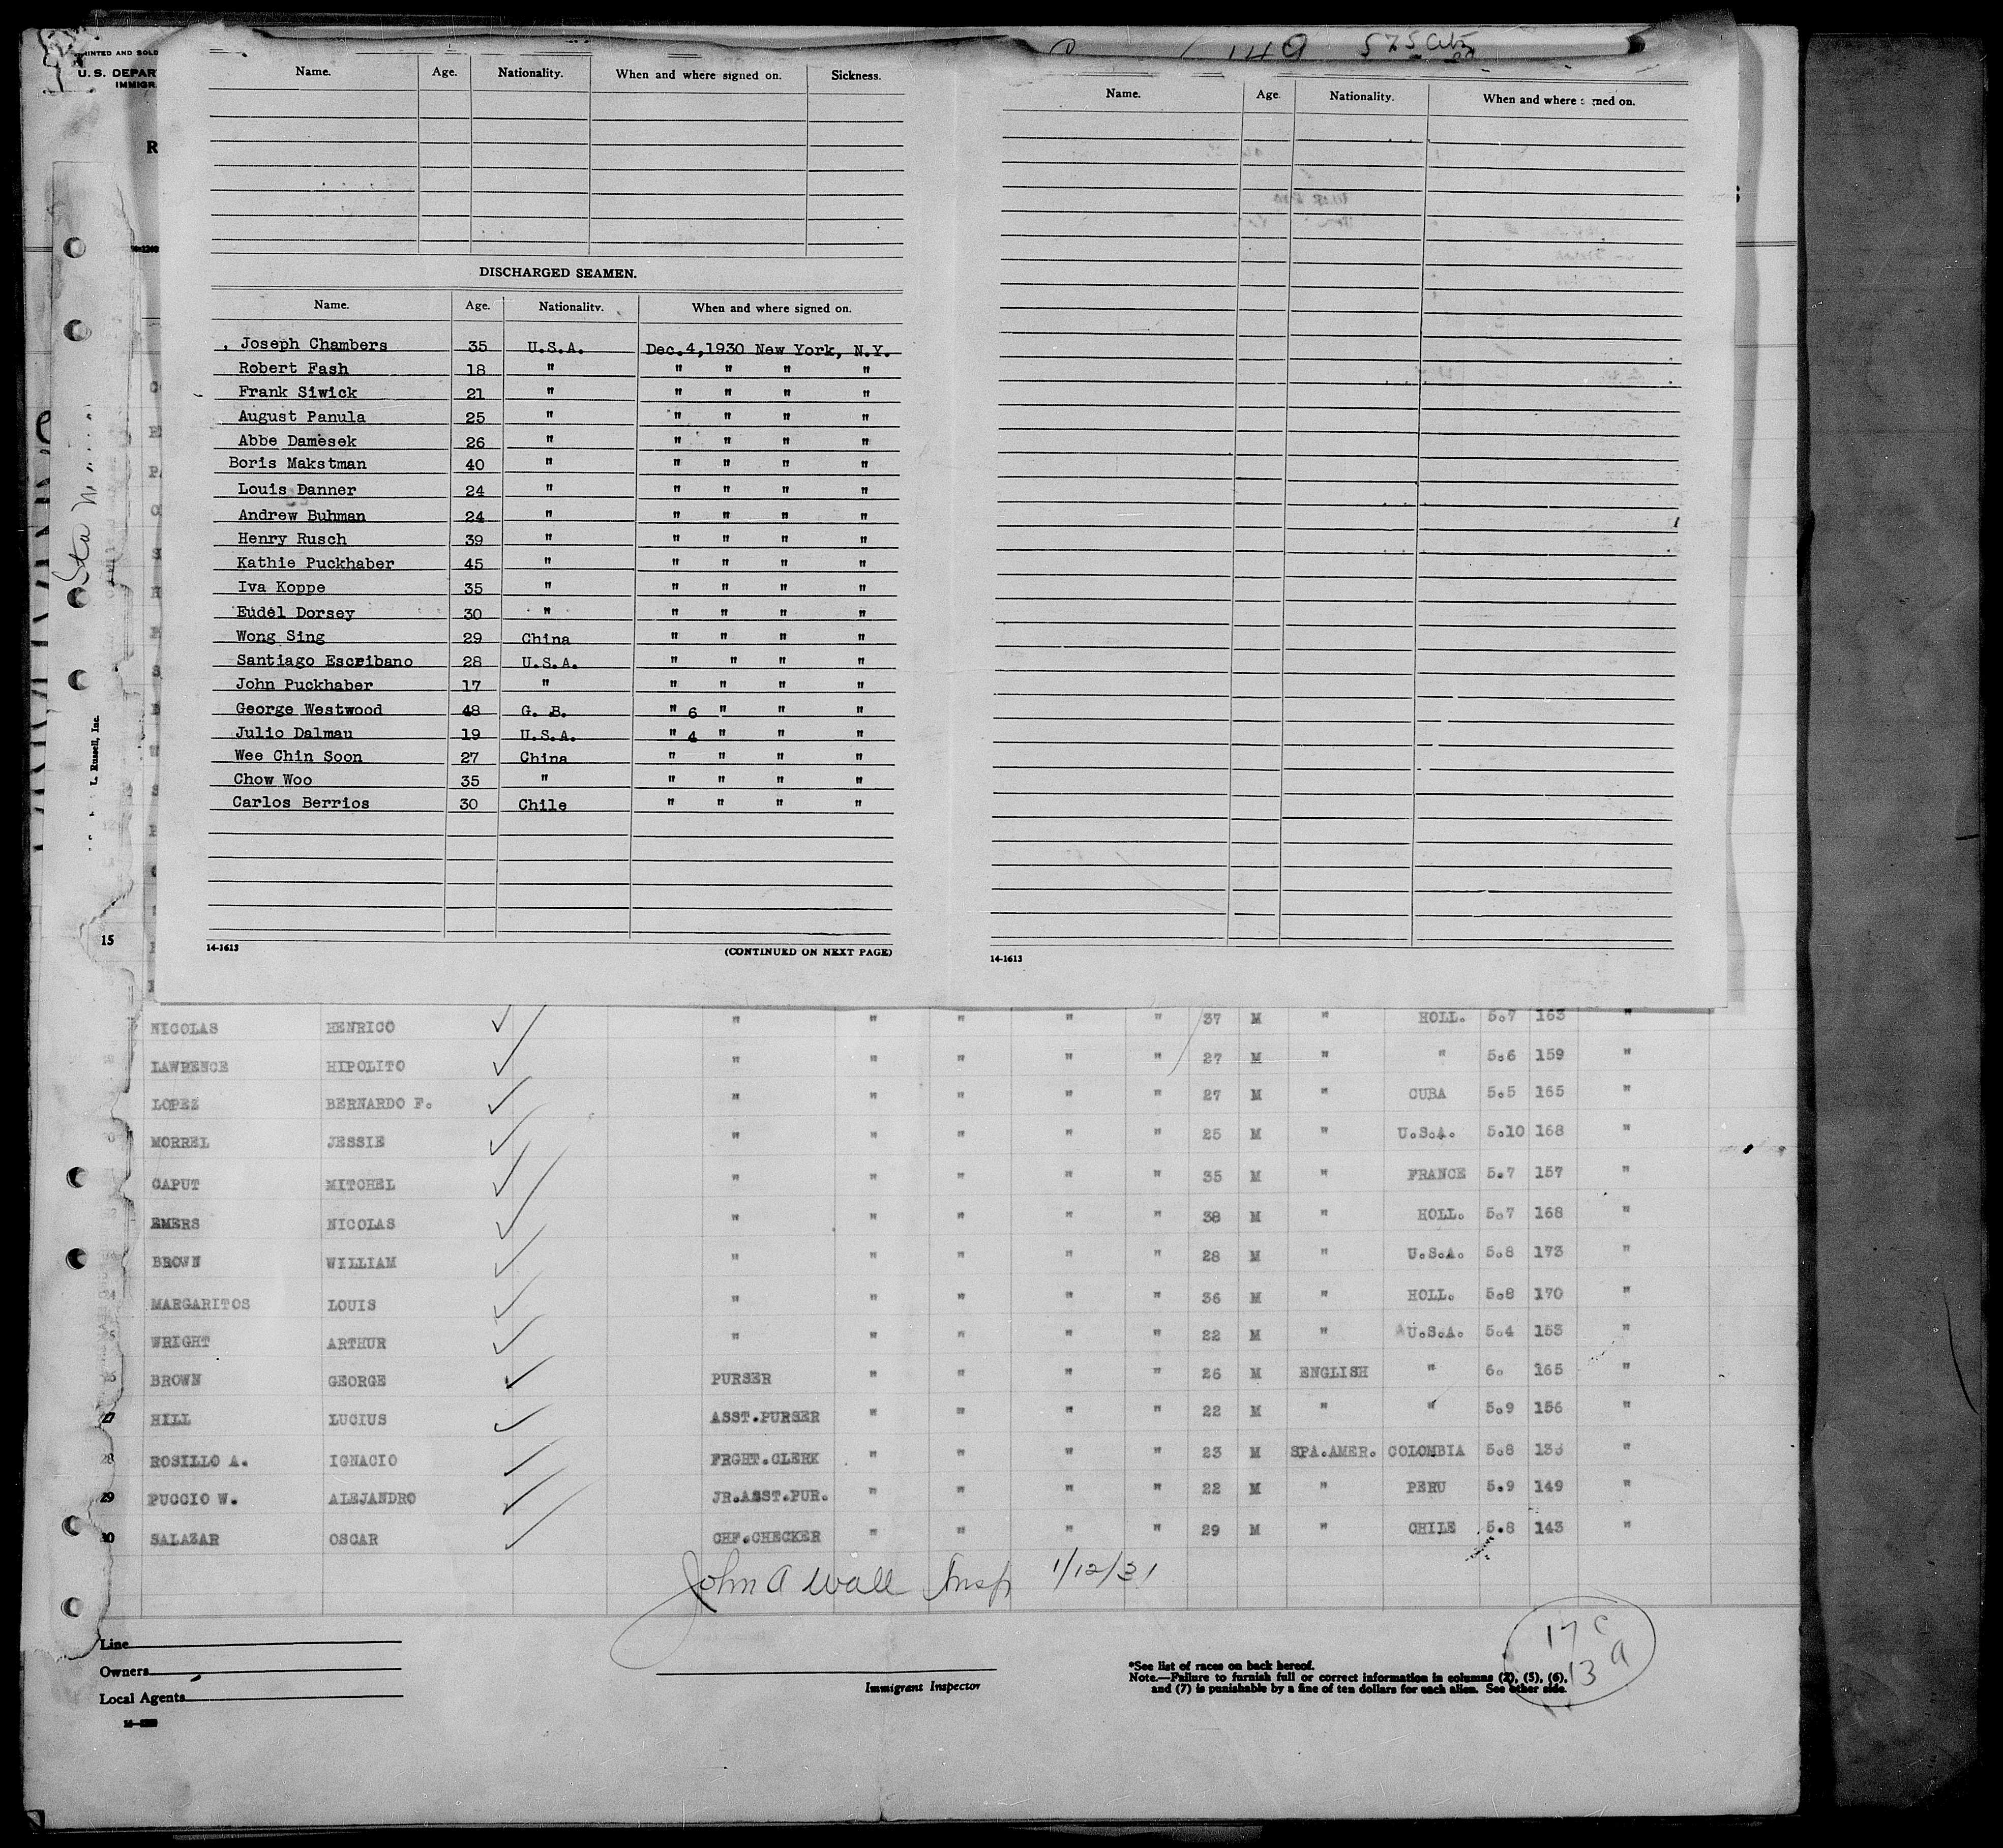 PRINTED AND SOLD
U. S. DEPAR
IMMIGR
R
149 575
Name. Age. Nationality. When and where signed on. Sickness.
Name. Age. Nationality. When and where signed on.
DISCHARGED SEAMEN.
Name. Age. Nationality. When and where signed on.
Joseph Chambers 35 U.S.A. Dec.4,1930 New York, N.Y.
Robert Fash 18 " " " " "
Frank Siwick 21 " " " " "
August Panula 25 " " " " "
Abbe Damesek 26 " " " " "
Boris Makstman 40 " " " " "
Louis Danner 24 " " " " "
Andrew Buhman 24 " " " " "
Henry Rusch 39 " " " " "
Kathie Puckhaber 45 " " " " "
Iva Koppe 35 " " " " "
Eudel Dorsey 30 " " " " "
Wong Sing 29 China " " " "
Santiago Escribano 28 U.S.A. " " " "
John Puckhaber 17 " " " " "
George Westwood 48 G. B. " 6 " " "
Julio Dalmau 19 U.S.A. " 4 " " "
Wee Chin Soon 27 China " " " "
Chow Woo 35 " " " " "
Carlos Berrios 30 Chile " " " "
14-1613 (CONTINUED ON NEXT PAGE)
14-1613
L. Russell, Inc.
15
NICOLAS HENRICO " " " " " 37 M " HOLL. 5.7 163 "
LAWRENCE HIPOLITO " " " " " 27 M " " 5.6 159 "
LOPEZ BERNARDO F. " " " " " 27 M " CUBA 5.5 165 "
MORREL JESSIE " " " " " 25 M " U.S.A. 5.10 168 "
CAPUT MITCHEL " " " " " 35 M " FRANCE 5.7 157 "
EMERS NICOLAS " " " " " 38 M " HOLL. 5.7 168 "
BROWN WILLIAM " " " " " 28 M " U.S.A. 5.8 173 "
MARGARITOS LOUIS " " " " " 36 M " HOLL. 5.8 170 "
WRIGHT ARTHUR " " " " " 22 M " U.S.A. 5.4 153 "
BROWN GEORGE PURSER " " " " 26 M ENGLISH " 6. 165 "
27 HILL LUCIUS ASST.PURSER " " " " 22 M " " 5.9 156 "
28 ROSILLO A. IGNACIO FRGHT.CLERK " " " " 23 M SPA.AMER. COLOMBIA 5.8 "
29 PUCCIO W. ALEJANDRO JR.ASST.PUR. " " " " 22 M " PERU 5.9 149 "
30 SALAZAR OSCAR CHF.CHECKER " " " " 29 M " CHILE 5.8 143 "
John A Wall Insp 1/12/31
17 c
13 a
Line
Owners
Local Agents
Immigrant Inspector
*See list of races on back hereof.
Note.—Failure to furnish full or correct information in columns (2), (5), (6),
and (7) is punishable by a fine of ten dollars for each alien. See other side.